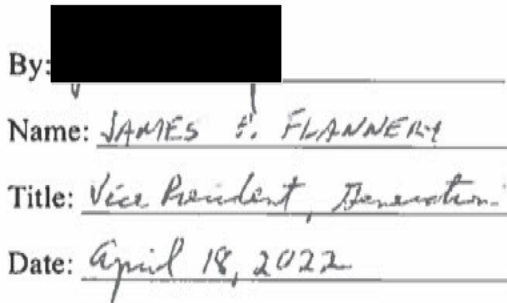 By:
Name: JAMES F. FLANNERY
Title: Vice President, Generation
Date: April 18, 2022